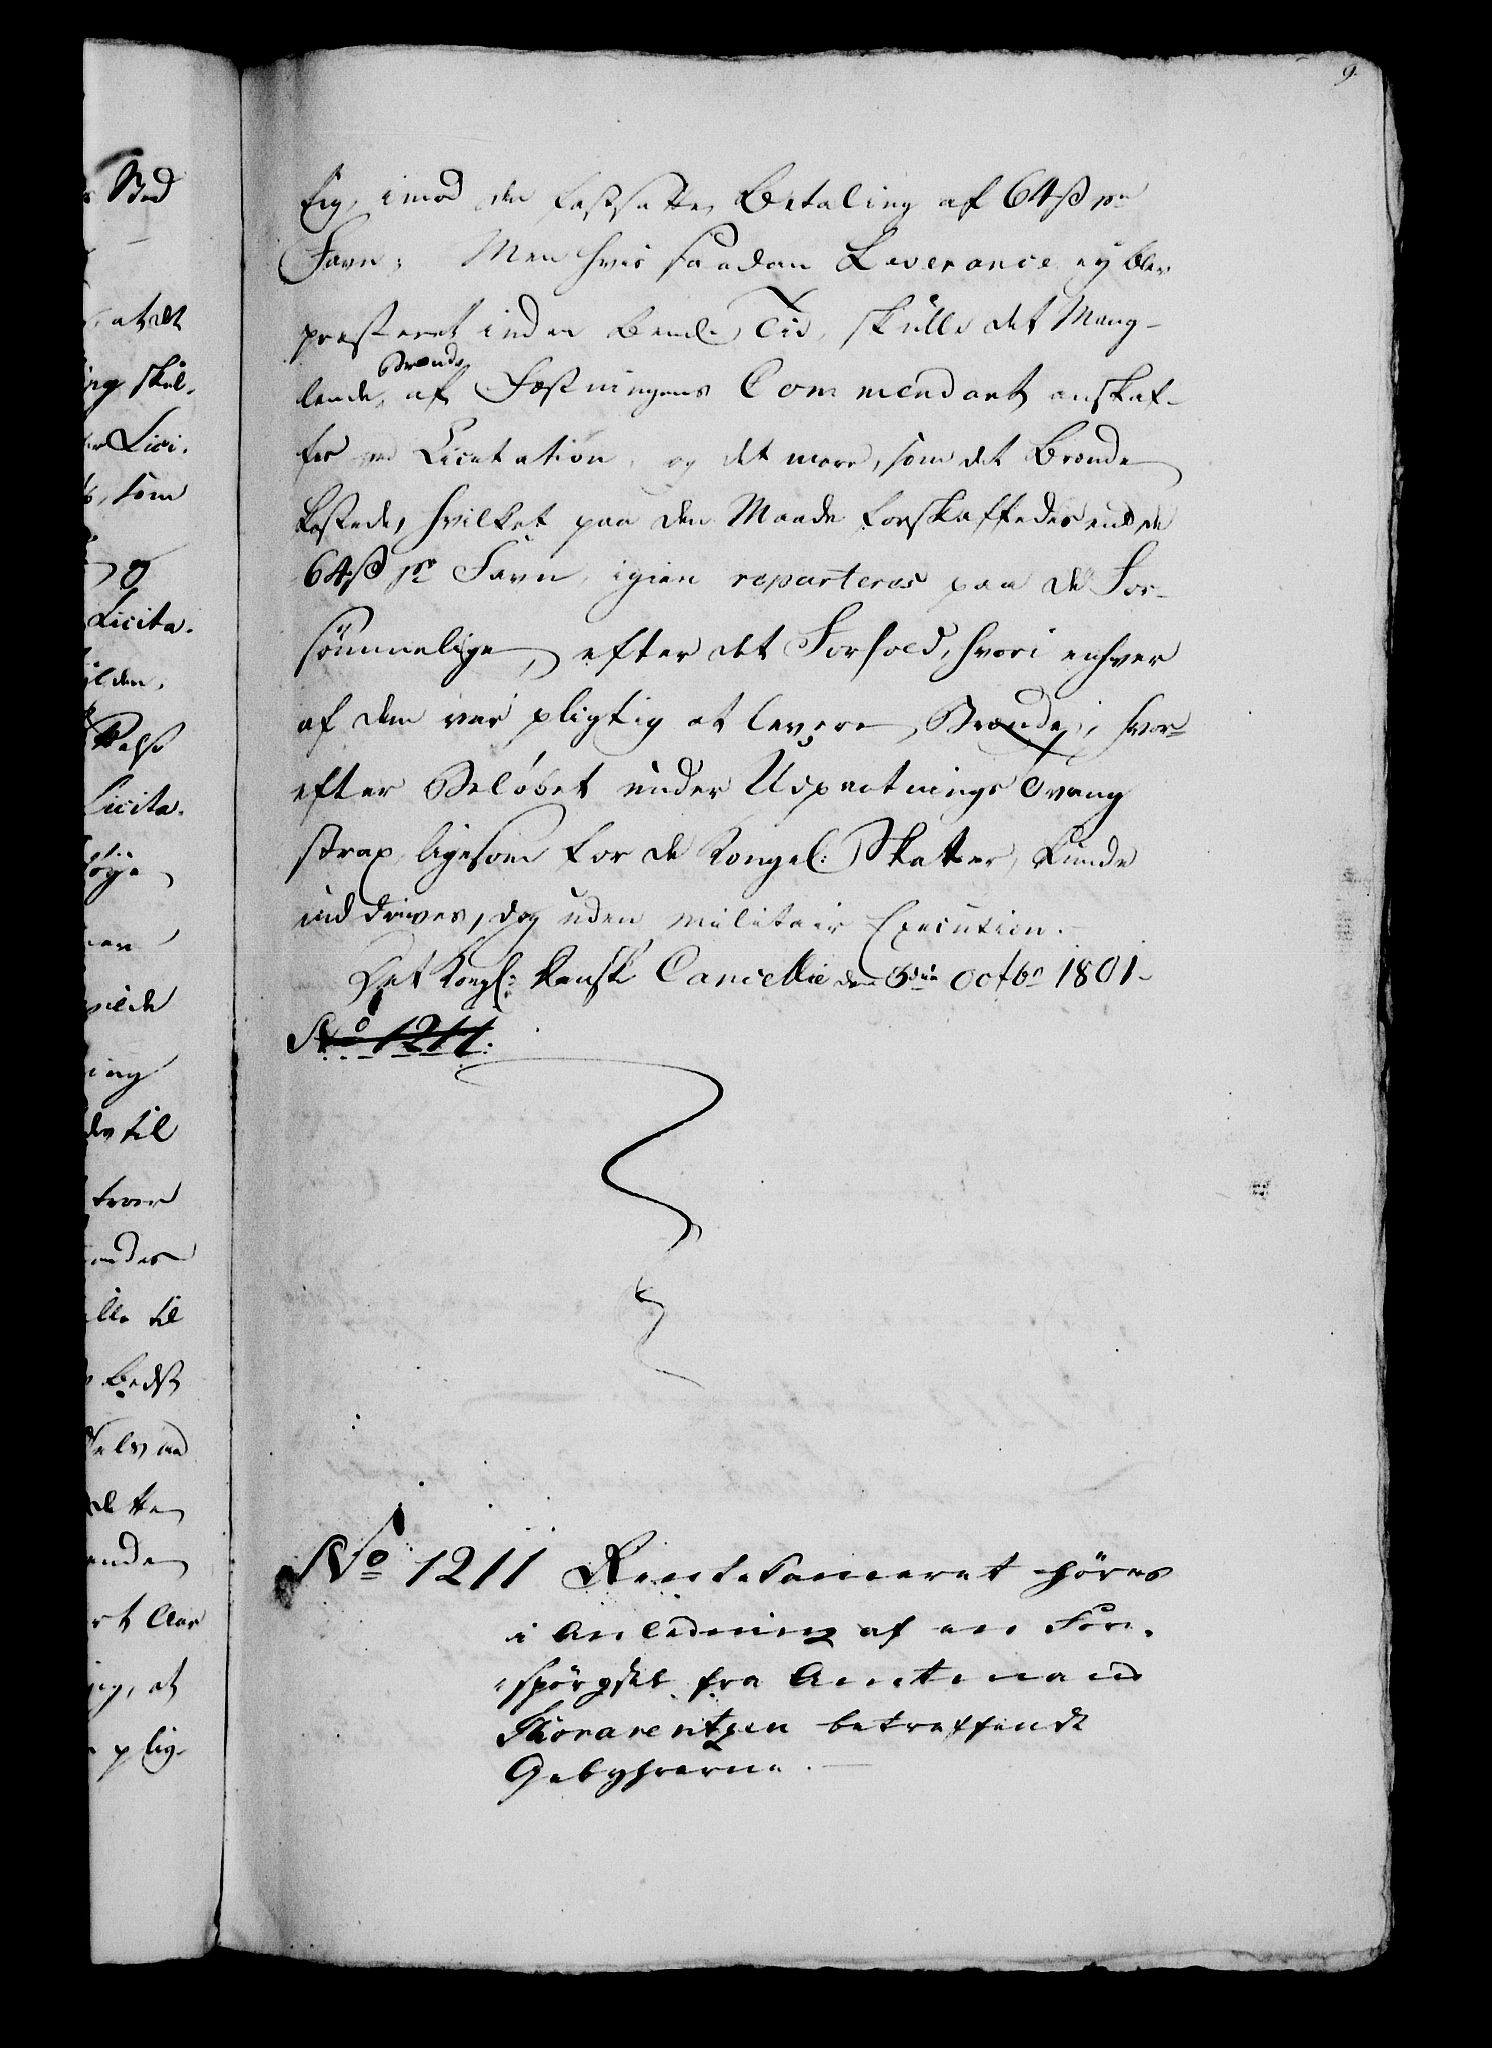 9
tig, imod den fastsatte Betaling af 64 ß pr
Favn; Men hvis saadan Leverance ey blev
præsteret inden bemte Tid, skulle det Mang-
lende Brænde af Fæstningens Commendant anskaf-
fes ved Licitation, og det mere, som det Brænde
kostede, hvilket paa den Maade forskaffedes end de
64 ß pr Favn, igien reparteres paa de For-
sømmelige, efter det Forhold, hvori enhver
af dem var pligtig at levere Brænde, hvor-
efter Beløbet under Udpantnings Tvang
strax, ligesom for de Kongel: Skatter, kunde
inddrives, dog uden militair Execution.
Det Kongl: Danske Cancellie den 3die Octbr 1801.
No 1211.
No 1211 Rentekammeret høres
i Anledning af en For-
spørgsel fra Amtmand
Thorarentzen betreffende
Gebyhrerne.
Bød
at det
skul-
Lici-
som
Licita-
ilden,
Licita-
ing
til
troer
ille til
bedst
dette
ende
rt Aar
at
plig-